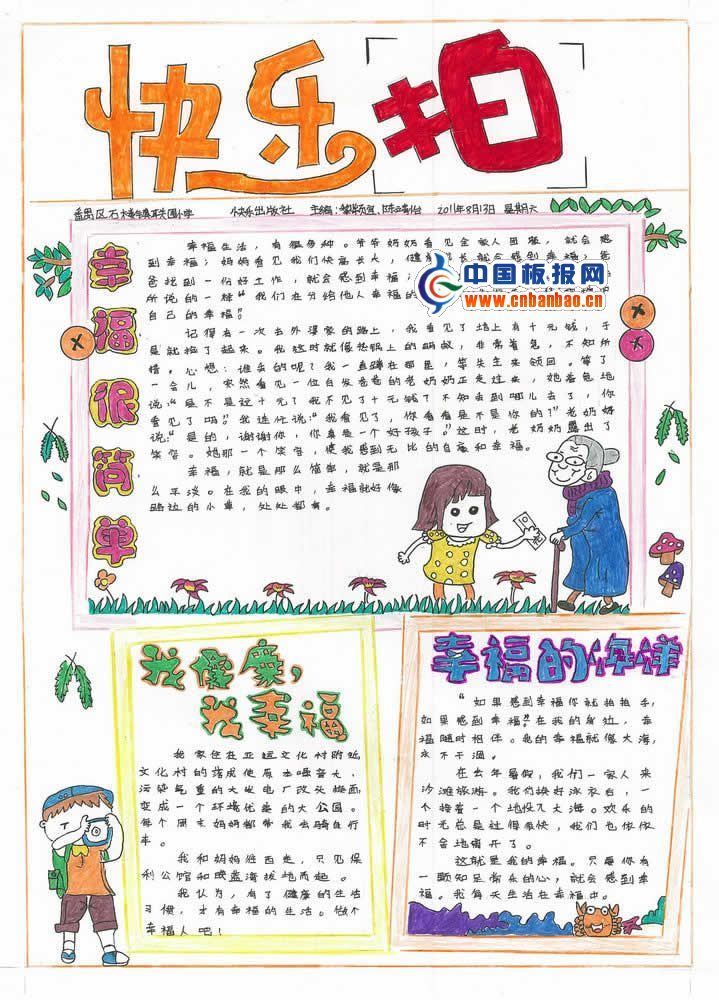 快乐拍
番禺区石楼镇联围小学 快乐出版社 主编: 2011年8月13日 星期六
中国板报网
www.cnbanbao.cn
幸福很简单
幸福生活，有很多种。爷爷奶奶看见全家人团聚，就会感
到幸福；妈妈看见我们快高长大，健
爸找到一份好工作，就会感到幸福；
所说的一样“我们在分给他人幸福的
自己的幸福”。
记得有一次去外婆家的路上，我看见了地上有十元钱，于
是就捡了起来。我这时就像热锅上的蚂蚁，非常着急，不知所
措。心想：谁丢的呢？我一直蹲在那里，等失主来领回。等了
一会儿，突然看见一位白发苍苍的老奶奶正走过来，她着急地
说：“是不是这十元？我不见了十元钱？不知丢到哪儿去了，你
看见了吗？”我连忙说：“我看见了，你看看是不是你的？”老奶奶
说：“是的，谢谢你，你真是一个好孩子。”这时，老奶奶露出了
笑容。她那一个笑容，使我感到无比的自豪和幸福。
幸福，就是那么简单，就是那
么平淡。在我的眼中，幸福就好像
路边的小草，处处都有。
我健康，
我幸福
我家住在亚运文化村附近
文化村的落成使原本噪音大，
污染严重的火发电厂改头换面，
变成一个环境优美的大公园。
每个周末妈妈都带我去骑自行
车。
我和妈妈继西走，只见保
利公馆和 拔地而起。
我认为，有了健康的生活
习惯，才有幸福的生活。做个
幸福人吧！
幸福的海洋
“如果感到幸福你就拍拍手，
如果感到幸福”在我的身边，幸
福随时相伴。我的幸福就像大海，
永不干涸。
在去年暑假，我们一家人来
沙滩旅游。我们换好泳衣后，一
个接着一个地投入大海。欢乐的
时光总是过得很快，我们也依依
不舍地离开了。
这就是我的幸福。只要你有
一颗知足常乐的心，就会感到幸
福。我每天生活在幸福中。